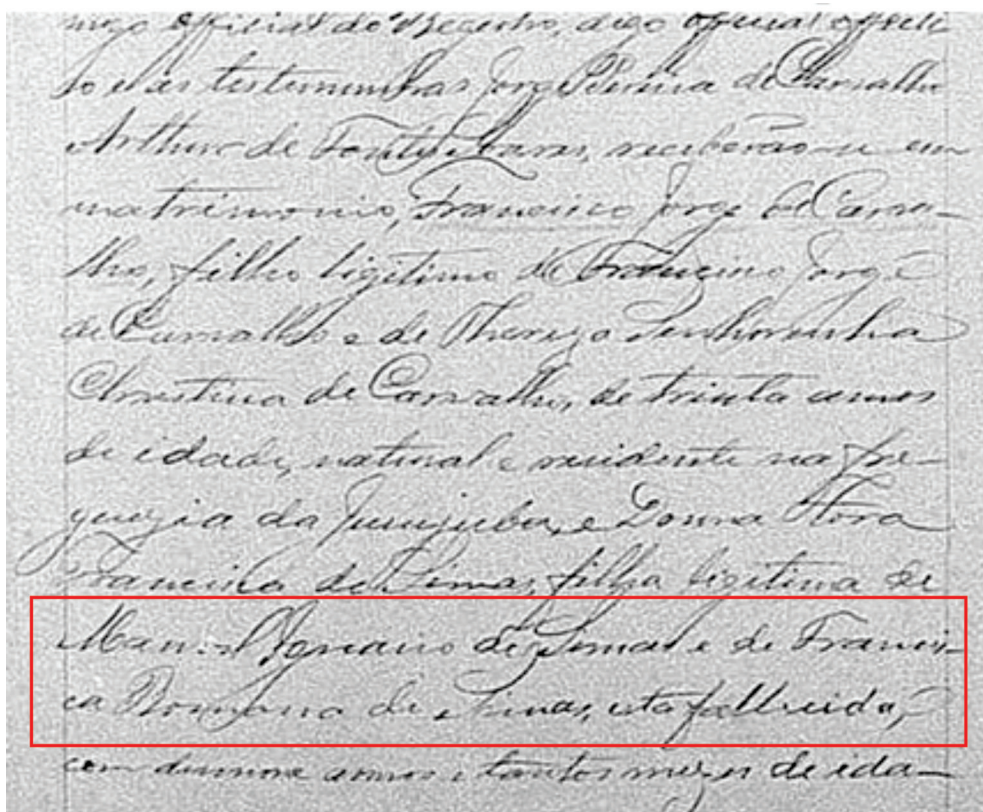 migo official do Registro, digo official
to e as testemunhas Jorge Pereira de Carvalho
Arthur de Tavares, receberão-se em
matrimonio, Francisco Jorge de Carva-
lho, filho ligitimo de Francisco Jorge
de Carvalho e de Thereza Senhorinha
Christina de Carvalho, de trinta annos
de idade, natural e residente na fre-
guezia da Jurujuba, e Donna Flora
Francisca de Simas, filha ligitima de
Manoel Ignacio de Simas e de Francis-
ca Romana de Simas, esta fallecida,
com desenove annos e tantos mezes de ida-